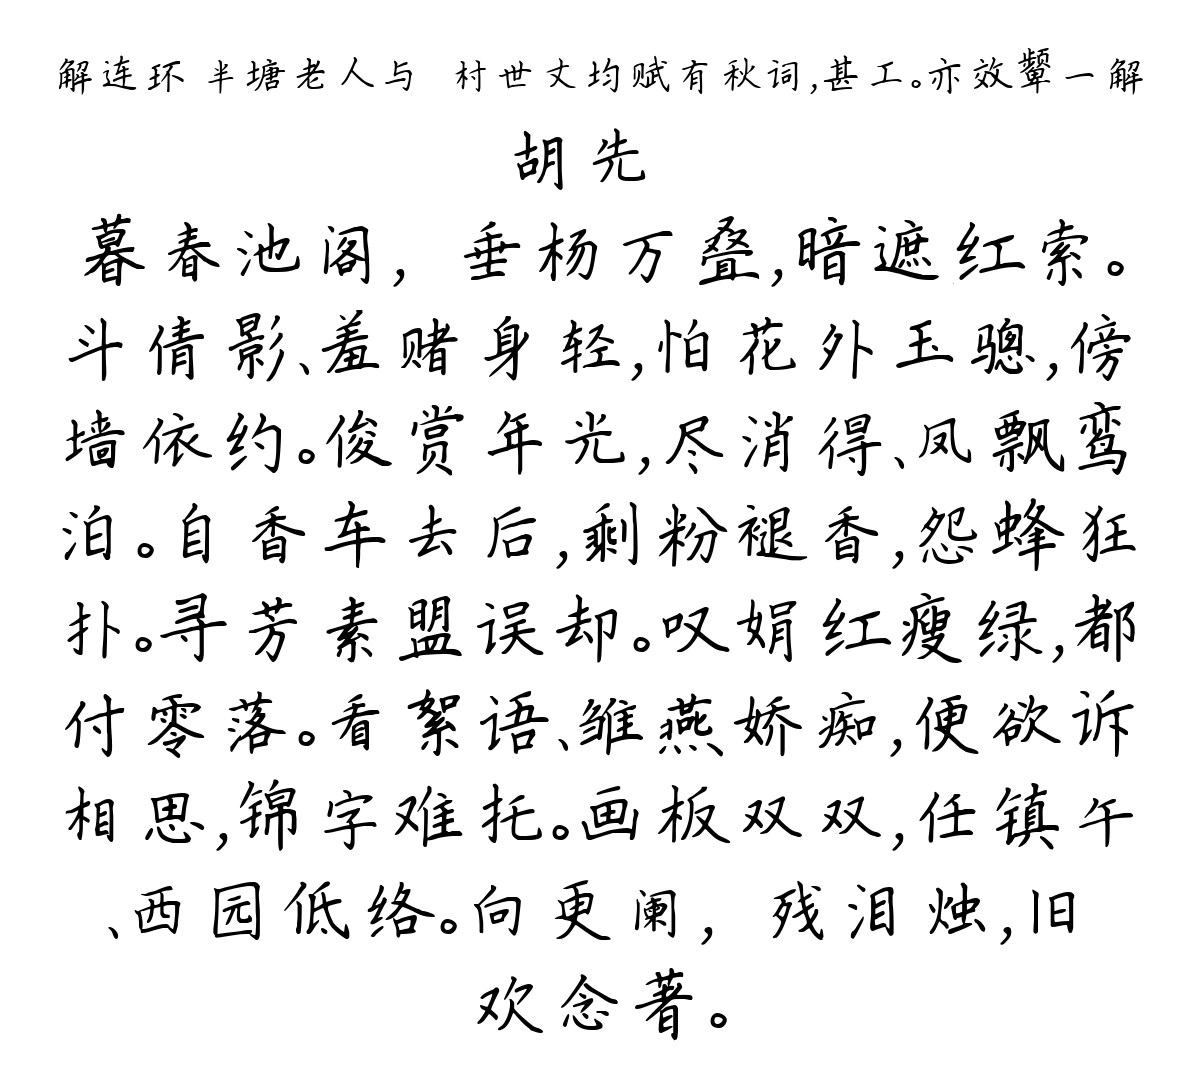 解连环 半塘老人与 村世丈均赋有秋词,甚工。亦效颦一解
胡先
暮春池阁，垂杨万叠,暗遮红索。
斗倩影、羞赌身轻,怕花外玉骢,傍
墙依约。俊赏年光,尽消得、凤飘鸾
泊。自香车去后,剩粉褪香,怨蜂狂
扑。寻芳素盟误却。叹娟红瘦绿,都
付零落。看絮语、雏燕娇痴,便欲诉
相思,锦字难托。画板双双,任镇午
、西园低络。向更阑，残泪烛,旧
欢念著。